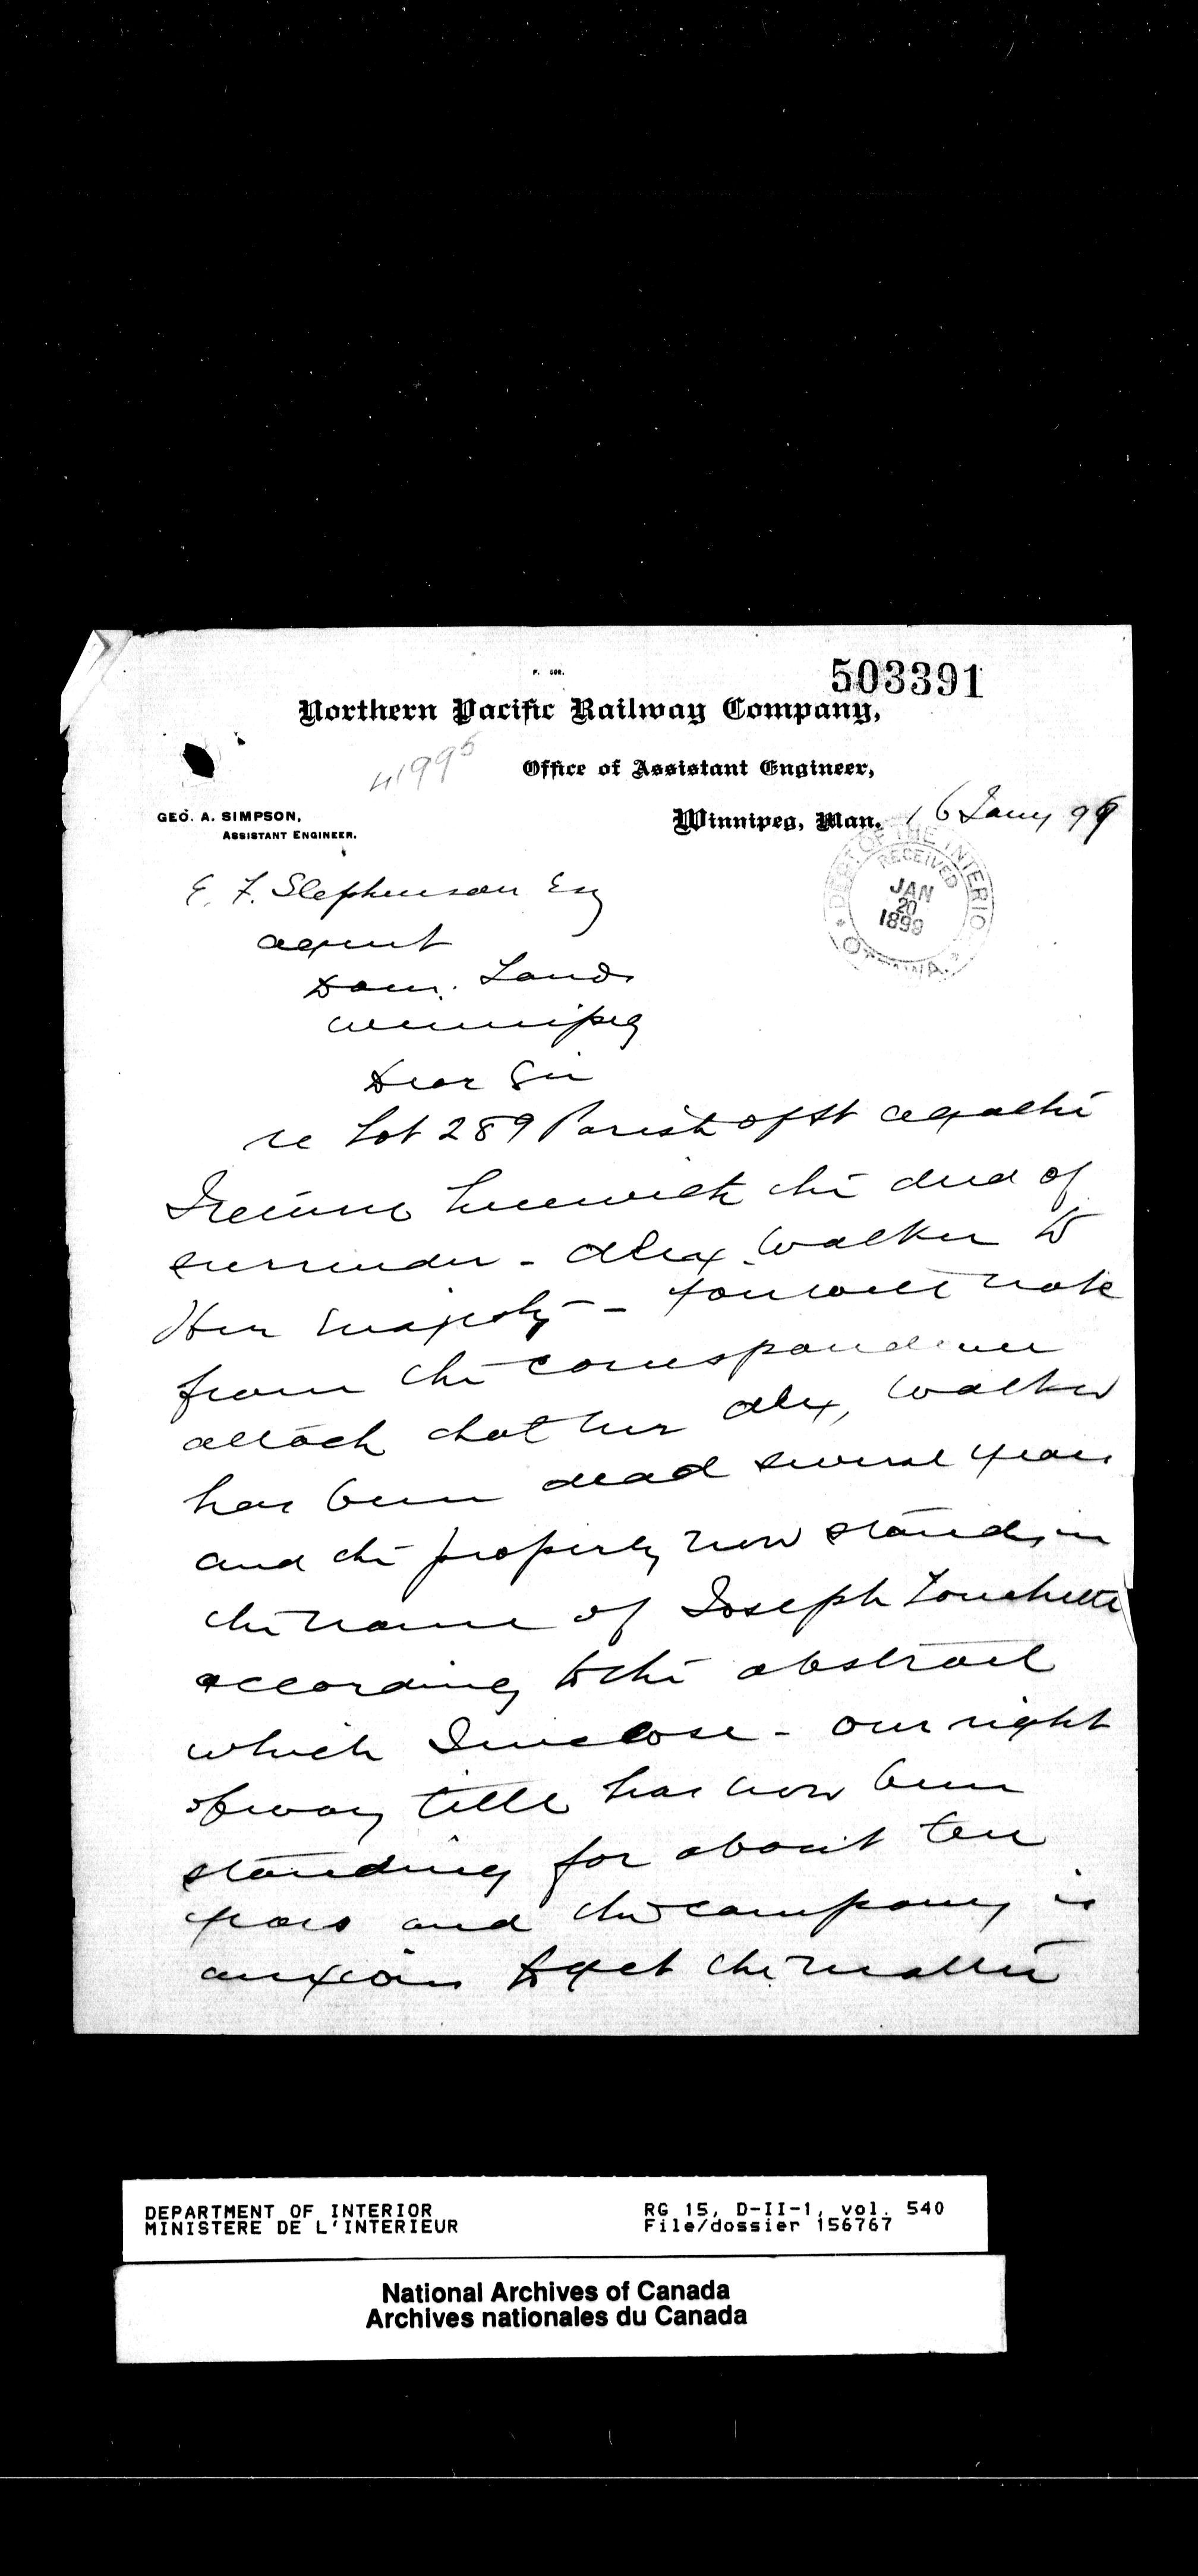 P. 508.
503391
Northern Pacific Railway Company,
41995
Office of Assistant Engineer,
GEO. A. SIMPSON,
ASSISTANT ENGINEER.
Winnipeg, Man. 16 Jany 99
DEPT OF THE INTERIOR
RECEIVED
JAN
20
1899
OTTAWA.
E. F. Stephenson Esq
agent
Dom. Lands
Winnipeg
Dear Sir
re Lot 289 Parish of St agathe
I return herewith the deed of
surrender - Alex Walker to
Her Majesty - You will note
from the correspondence
attach that Alex, Walker
has been dead several years
and the property now stands in
the name of Joseph Touchette
according to the abstract
which I inclose - our right
of way title has now been
standing for about ten
years and the company is
anxious to get the matter
DEPARTMENT OF INTERIOR
MINISTERE DE L'INTERIEUR
RG 15, D-II-1, vol. 540
File/dossier 156767
National Archives of Canada
Archives nationales du Canada